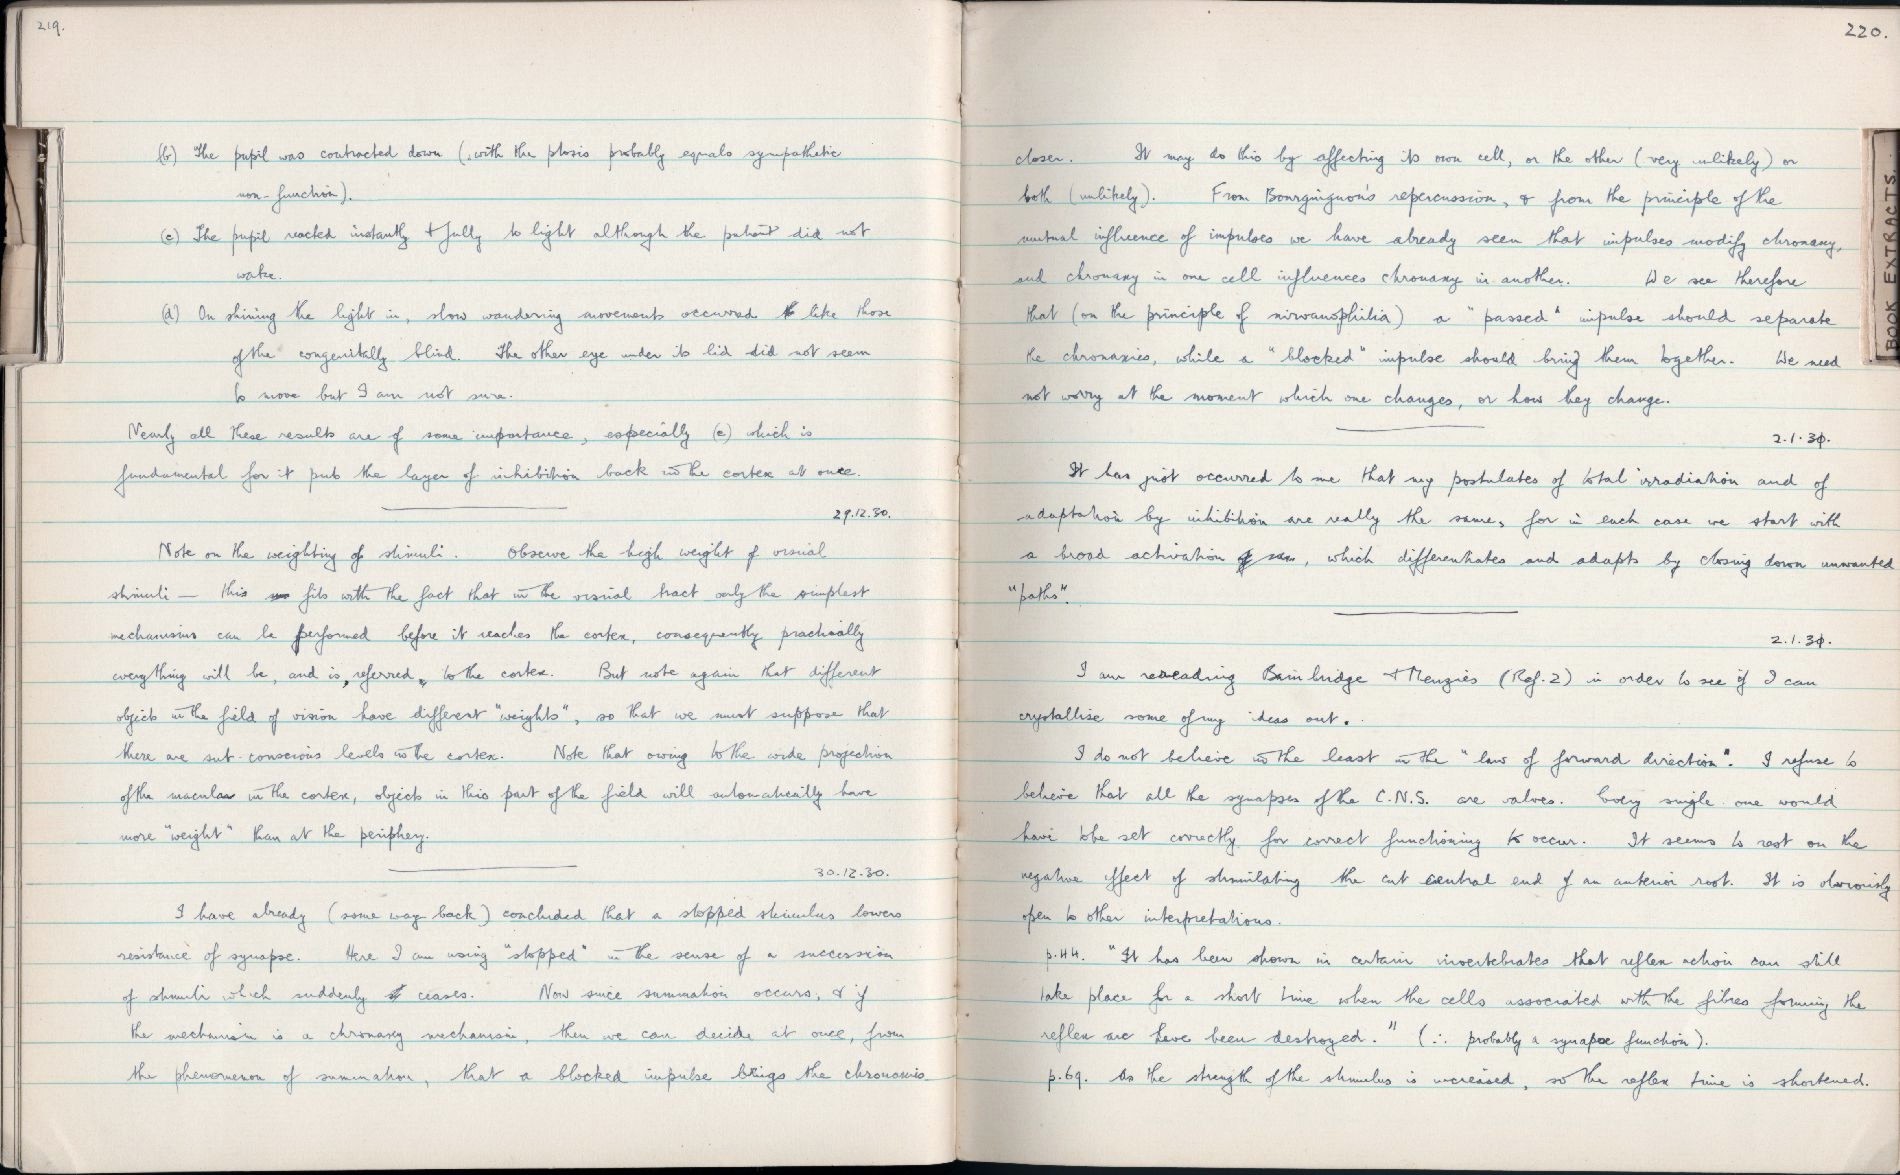 219.
(b) The pupil was contracted down (∴ with the ptosis probably equals sympathetic
non-function).
(c) The pupil reacted instantly & fully to light although the patient did not
wake.
(d) On shining the light in, slow wandering movements occurred like those
of the congenitally blind. The other eye under its lid did not seem
to move but I am not sure.
Nearly all these results are of some importance, especially (c) which is
fundamental for it puts the layer of inhibition back in the cortex at once.
29.12.30.
Note on the weighting of stimuli. Observe the high weight of visual
stimuli — this fits with the fact that in the visual tract only the simplest
mechanisms can be performed before it reaches the cortex, consequently practically
everything will be, and is, referred, to the cortex. But note again that different
objects in the field of vision have different "weights", so that we must suppose that
there are sub-conscious levels in the cortex. Note that owing to the wide projection
of the macula in the cortex, objects in this part of the field will automatically have
more "weight" than at the periphery.
30.12.30.
I have already (some way back) concluded that a stopped stimulus lowers
resistance of synapse. Here I am using "stopped" in the sense of a succession
of stimuli which suddenly ceases. Now since summation occurs, & if
the mechanism is a chronaxy mechanism, then we can decide at once, from
the phenomenon of summation, that a blocked impulse brings the chronaxies
220.
closer. It may do this by affecting its own cell, or the other (very unlikely) or
both (unlikely). From Bourguignon's repercussion, & from the principle of the
mutual influence of impulses we have already seen that impulses modify chronaxy,
and chronaxy in one cell influences chronaxy in another. We see therefore
that (on the principle of nirvanophilia) a "passed" impulse should separate
the chronaxies, while a "blocked" impulse should bring them together. We need
not worry at the moment which one changes, or how they change.
2.1.31.
It has just occurred to me that my postulates of total irradiation and of
adaptation by inhibition are really the same, for in each case we start with
a broad activation, which differentiates and adapts by closing down unwanted
"paths".
2.1.31.
I am rereading Bainbridge & Menzies (Ref. 2) in order to see if I can
crystallise some of my ideas out.
I do not believe in the least in the "law of forward direction". I refuse to
believe that all the synapses of the C.N.S. are valves. Every single one would
have to be set correctly for correct functioning to occur. It seems to rest on the
negative effect of stimulating the cut central end of an anterior root. It is obviously
open to other interpretations.
p.44. "It has been shown in certain invertebrates that reflex action can still
take place for a short time when the cells associated with the fibres forming the
reflex arc have been destroyed." (∴ probably a synapse function).
p.69. As the strength of the stimulus is increased, so the reflex time is shortened.
BOOK EXTRACTS.